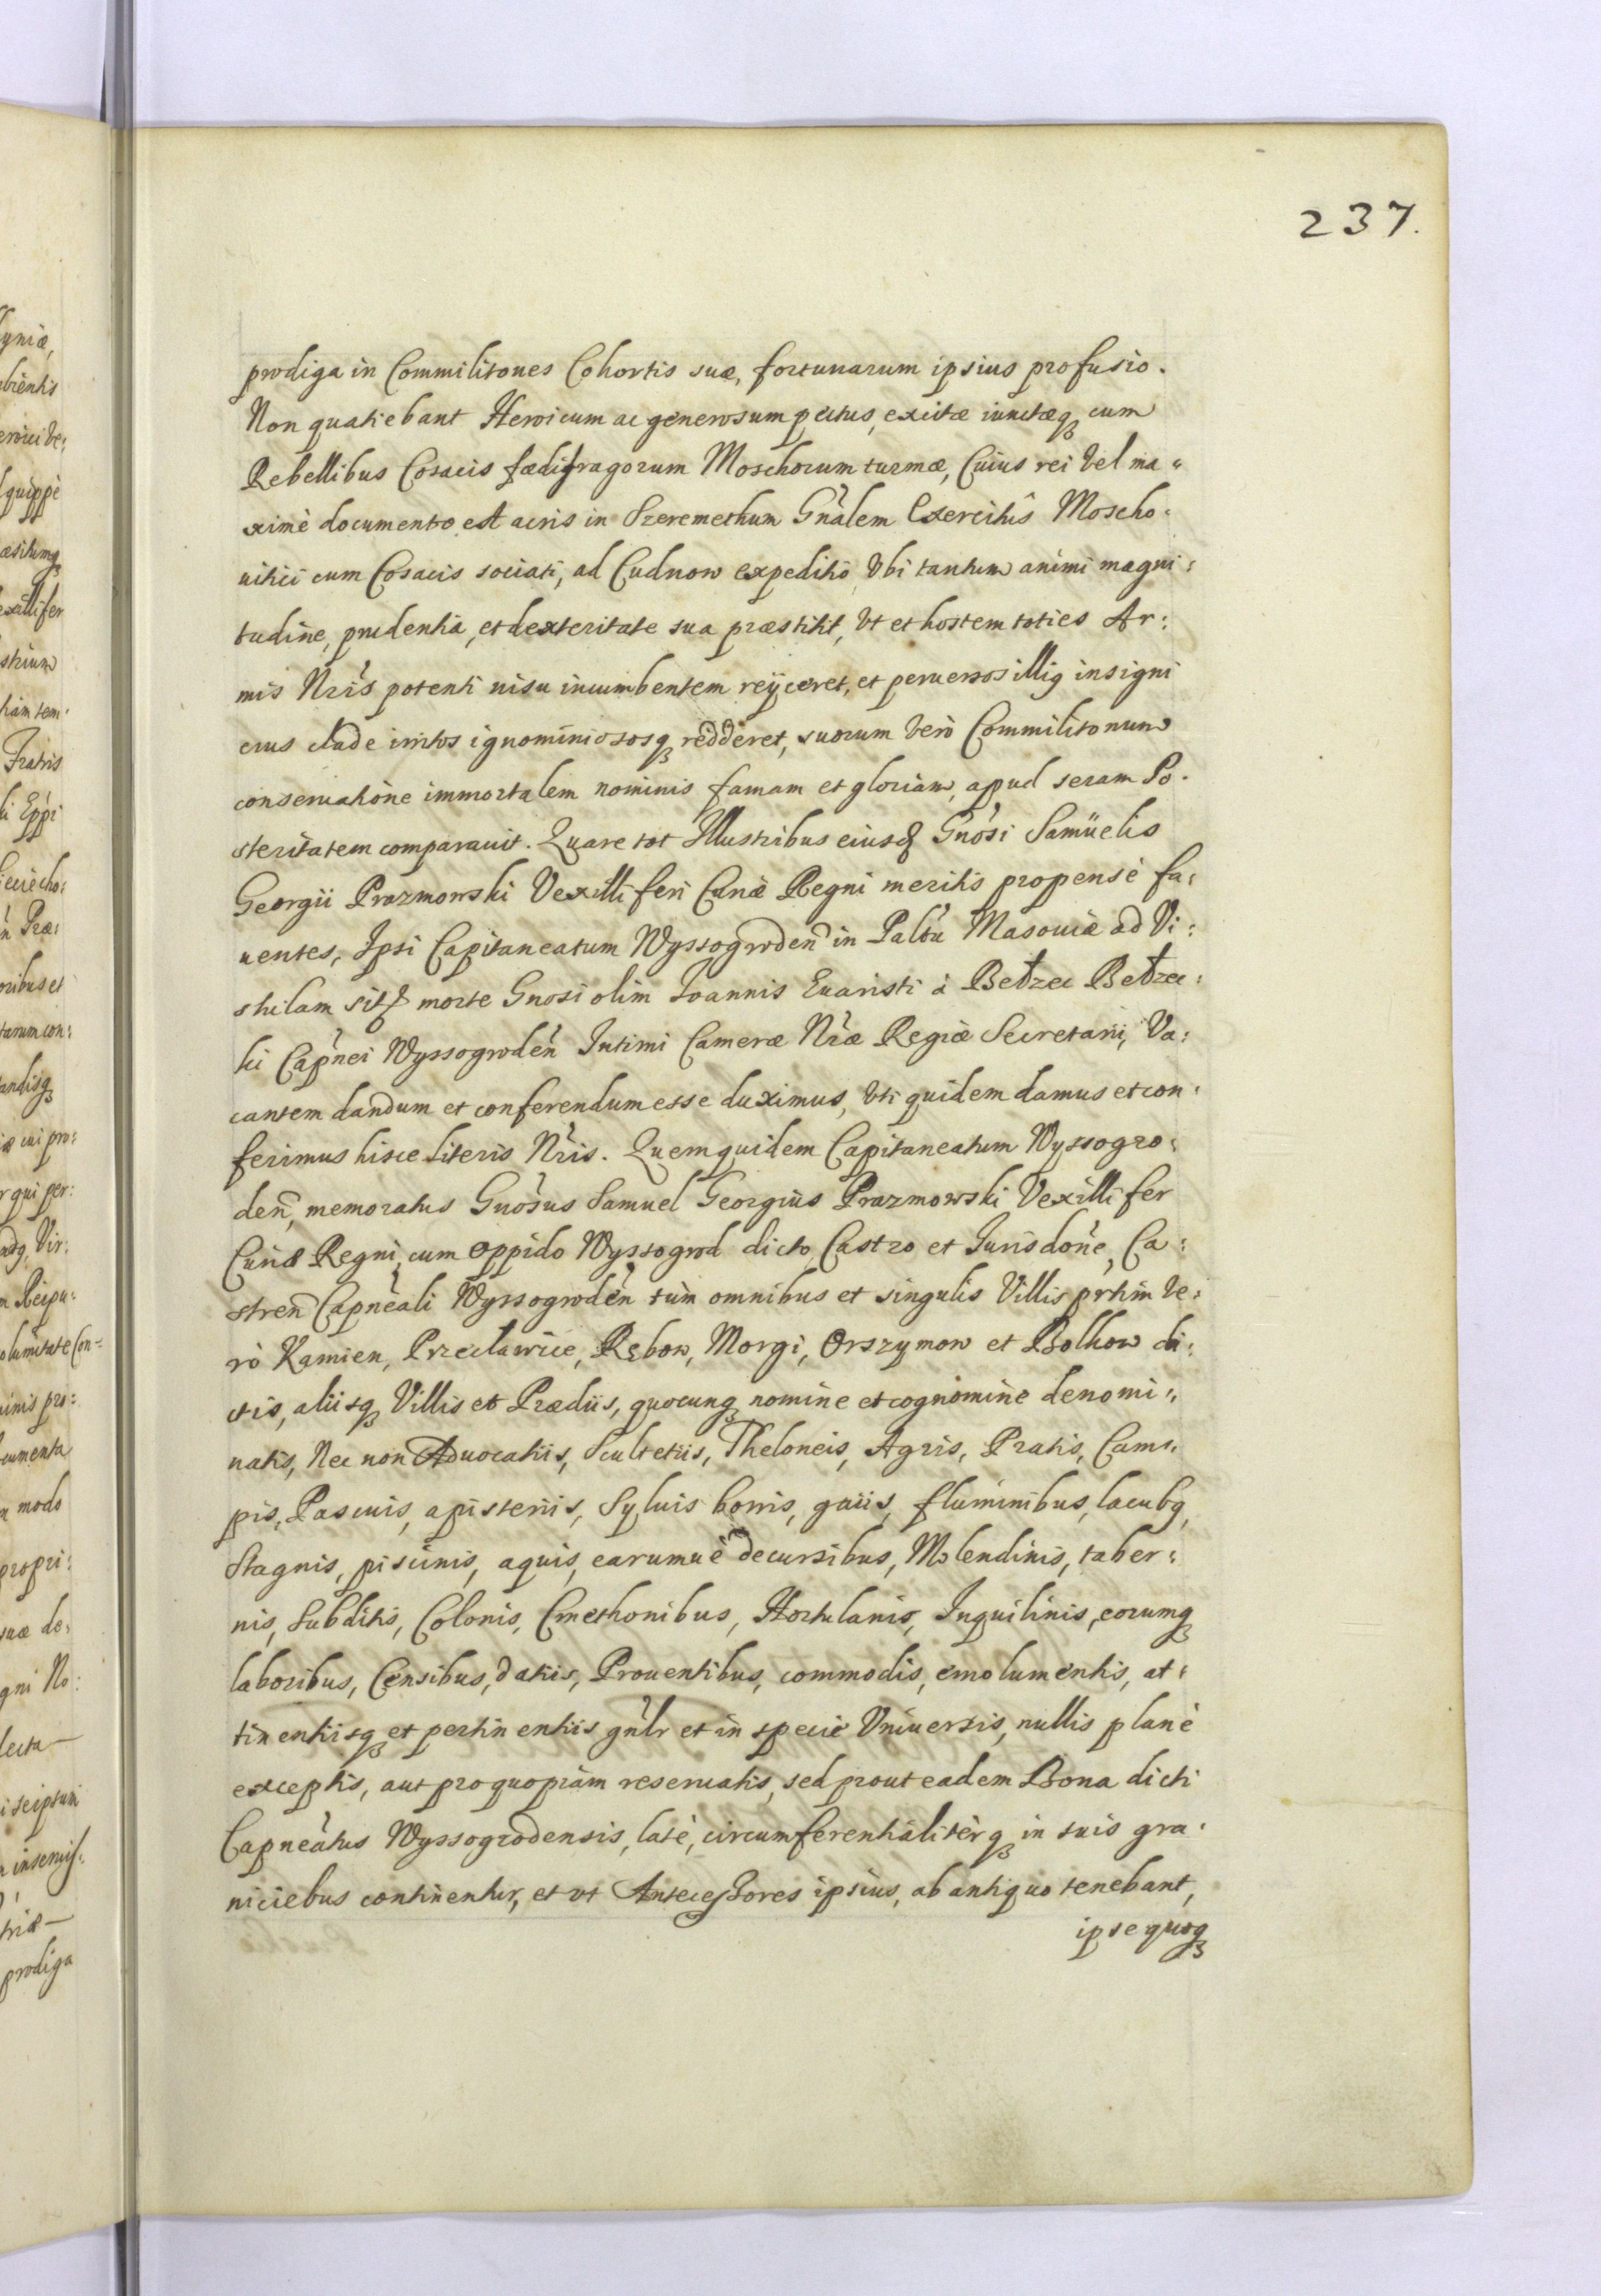 237.
prodiga in Commilitones Cohortis suæ, fortunarum ipsius profusio.
Non quatiebant Heroicum ac generosum pectus, excitæ iunctæq₃ cum
Rebellibus Cosacis fædifragorum Moschorum turmæ, Cuius rei Vel ma:
ximè documento est acris in Szeremethum Gnãlem Exercitûs Moscho:
uitici cum Cosacis sociati, ad Cudnow expeditio, Vbi tantum animi magni:
tudine, prudentia, et dexteritate sua præstitit, Vt et hostem toties Ar:
mis Nr̃is potenti nisu incumbentem reijceret, et peruersos illiq insigni
eius clade irritos ignominiososq₃ redderet, suorum Verò Commilitonum
conseruatione immortalem nominis famam et gloriam, apud seram Po:
steritatem comparauit. Quare tot Illustribus eiusd Gnosi Samüelis
Georgii Prazmowski Vexilliferi Curiæ Regni meritis propensè fa:
uentes, Ipsi Capitaneatum Wyssogroden in Paltu Masouiæ ad Vi:
stulam sitt morte Gnosi olim Ioannis Euaristi à Bełzec Bełzec:
ki Capnei Wyssogroden Intimi Cameræ Nr̃æ Regiæ Secretarii, Va:
cantem dandum et conferendum esse duximus, Vti quidem damus et con:
ferimus hisce literis Nr̃is. Quemquidem Capitaneatum Wyssogro:
den, memoratus Gnosus Samuel Georgius Prazmowski Vexillifer
Curiæ Regni, cum Oppido Wyssogrod dicto, Castro et Iurisdone, Ca:
stren Capneali Wyssogroden tùm omnibus et singulis Villis prtim Ve:
rò Kamien, Przecławice, Rębow, Morgi, Orszymow et Bolkow di:
ctis, aliisq₃ Villis et Prædiis, quocunq₃ nomine et cognomine denomi:
natis, Nec non Aduocatiis, Scultetiis, Theloneis, Agris, Pratis, Cam:
pis, Pascuis, apisteriis, Syluis borris, gaiis, fluminibus, lacubq,
Stagnis, piscinis, aquis, earumuè decursibus, Molendinis, taber:
nis, Subditis, Colonis, Cmethonibus, Hortulanis, Inquilinis, eorumq₃
laboribus, Censibus, datiis, Prouentibus, commodis, emolumentis, at:
tinentiisq₃ et pertinentiis gnlr et in specie Vniuersis, nullis planè
exceptis, aut pro quopiam reseruatis, sed prout eadem Bona dicti
Capneatus Wyssogrodensis, latè, circumferentialitèrq₃ in suis gra:
niciebus continentur, et vt Antecessores ipsius, ab antiquo tenebant,
ipse quoq₃